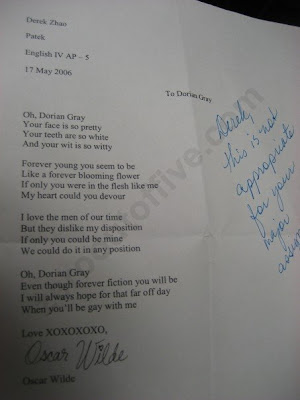 Derek Zhao
Patek
English IV AP – 5
17 May 2006
To Dorian Gray
Oh, Dorian Gray
Your face is so pretty
Your teeth are so white
And your wit is so witty
Forever young you seem to be
Like a forever blooming flower
If only you were in the flesh like me
My heart could you devour
I love the men of our time
But they dislike my disposition
If only you could be mine
We could do it in any position
Oh, Dorian Gray
Even though forever fiction you will be
I will always hope for that far off day
When you'll be gay with me
Love XOXOXOXO,
Oscar Wilde
Oscar Wilde
Derek,
this is not
appropriate
for your
major